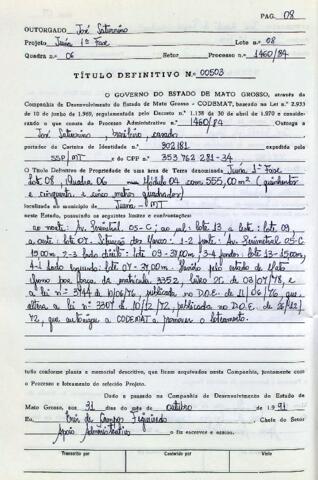 PÁG. 08
OUTORGADO José Saturnino
Projeto Juína 1ª Fase Lote n.º 08
Quadra n.º 06 Setor Processo n.º 1460/84
TÍTULO DEFINITIVO N.º 00503
O GOVERNO DO ESTADO DE MATO GROSSO, através da
Companhia de Desenvolvimento do Estado de Mato Grosso - CODEMAT, com base na Lei n.º 2.933
de 10 de junho de 1.969, regulamentada pelo Decreto n.º 1.138 de 30 de abril de 1.970 e conside-
rando o que consta do Processo Administrativo n.º 1460/84 Outorga a
José Saturnino brasileiro, casado
portador da Carteira de Identidade n.º 302181 expedida pela
SSP/MT e do CPF n.º 353 762 281-34
O Título Definitivo de Propriedade de uma área de Terra denominada Juína 1ª Fase
Lote 08, Quadra 06 Módulo 04 com 555,00 m² (quinhentos
e cinquenta e cinco metros quadrados)
localizada no município de Juína - MT
neste Estado, possuindo os seguintes limites e confrontações:
ao norte: Av. Perimetral 05-C, ao sul: lote 13 a leste: lote 09,
a oeste: lote 07. Situação dos Marcos: 1-2 frente: Av. Perimetral 05-C
15,00m, 2-3 lado direito: lote 09-37,00m, 3-4 fundos: lote 13-15,00m,
4-1 lado esquerdo: lote 07-37,00m. Havido pelo estado de Mato
Grosso por força da matrícula 3352, livro 2L de 03/07/78, e
a lei n.º 3744 de 10/06/76, publicada no D.O.E. de 11/06/76, que
altera a lei n.º 3307 de 10/12/72, publicada no D.O.E. de 26/12/
72, que autoriza a CODEMAT a promover o loteamento.
tudo conforme planta e memorial descritivo, que ficam arquivados nesta Companhia, juntamente com
o Processo e loteamento do referido Projeto.
Dado e passado na Companhia de Desenvolvimento do Estado de
Mato Grosso, aos 31 dias do mês de outubro de 19 91
Eu, de Campos Figueiredo Chefe do Setor
Apoio Administrativo o fiz escrever e assino.
Transcrito por Conferido por Visto